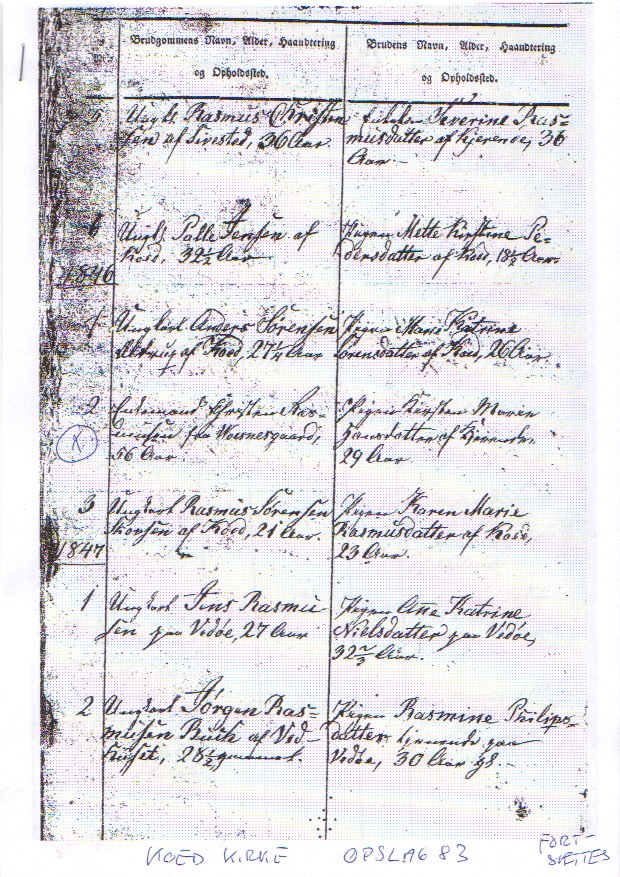 Brudgommens Navn, Alder, Haandtering
og Opholdssted.
Brudens Navn, Alder, Haandtering
og Opholdssted.
5 Ungk. Rasmus Christen
sen af Sivested, 36 Aar
Severine Ras=
musdatter af Hjerende, 36
Aar.
6 Ungk. Palle Jensen af
Koed, 32½ Aar
Pigen Mette Kirstine Pe=
dersdatter af Koed, 18½ Aar.
1846
1 Ungkarl Anders Sørensen
af Koed, 27¼ Aar
Pigen Marie Katrine
Sørensdatter af Koed, 26 Aar.
2 Enkemand Christen Ras=
mussen fra
56 Aar.
Pigen Kirsten Maren
Hansdatter af Hjerende.
29 Aar.
X
3 Ungkarl Rasmus Sørensen
af Koed, 21 Aar.
Pigen Karen Marie
Rasmusdatter af Koed,
23 Aar.
1847
1 Ungkarl Jens Rasmu=
sen paa Vedøe, 27 Aar
Pigen Ane Katrine
Nielsdatter paa Vedøe,
Aar.
2 Ungkarl Jørgen Ras=
musen af Ved=
huset, 28½ gammel.
Pigen Rasmine Philips=
datter tjenende paa
Vedøe, 30 Aar gl.
KOED KIRKE OPSLAG 83
FORT-
SÆTTES